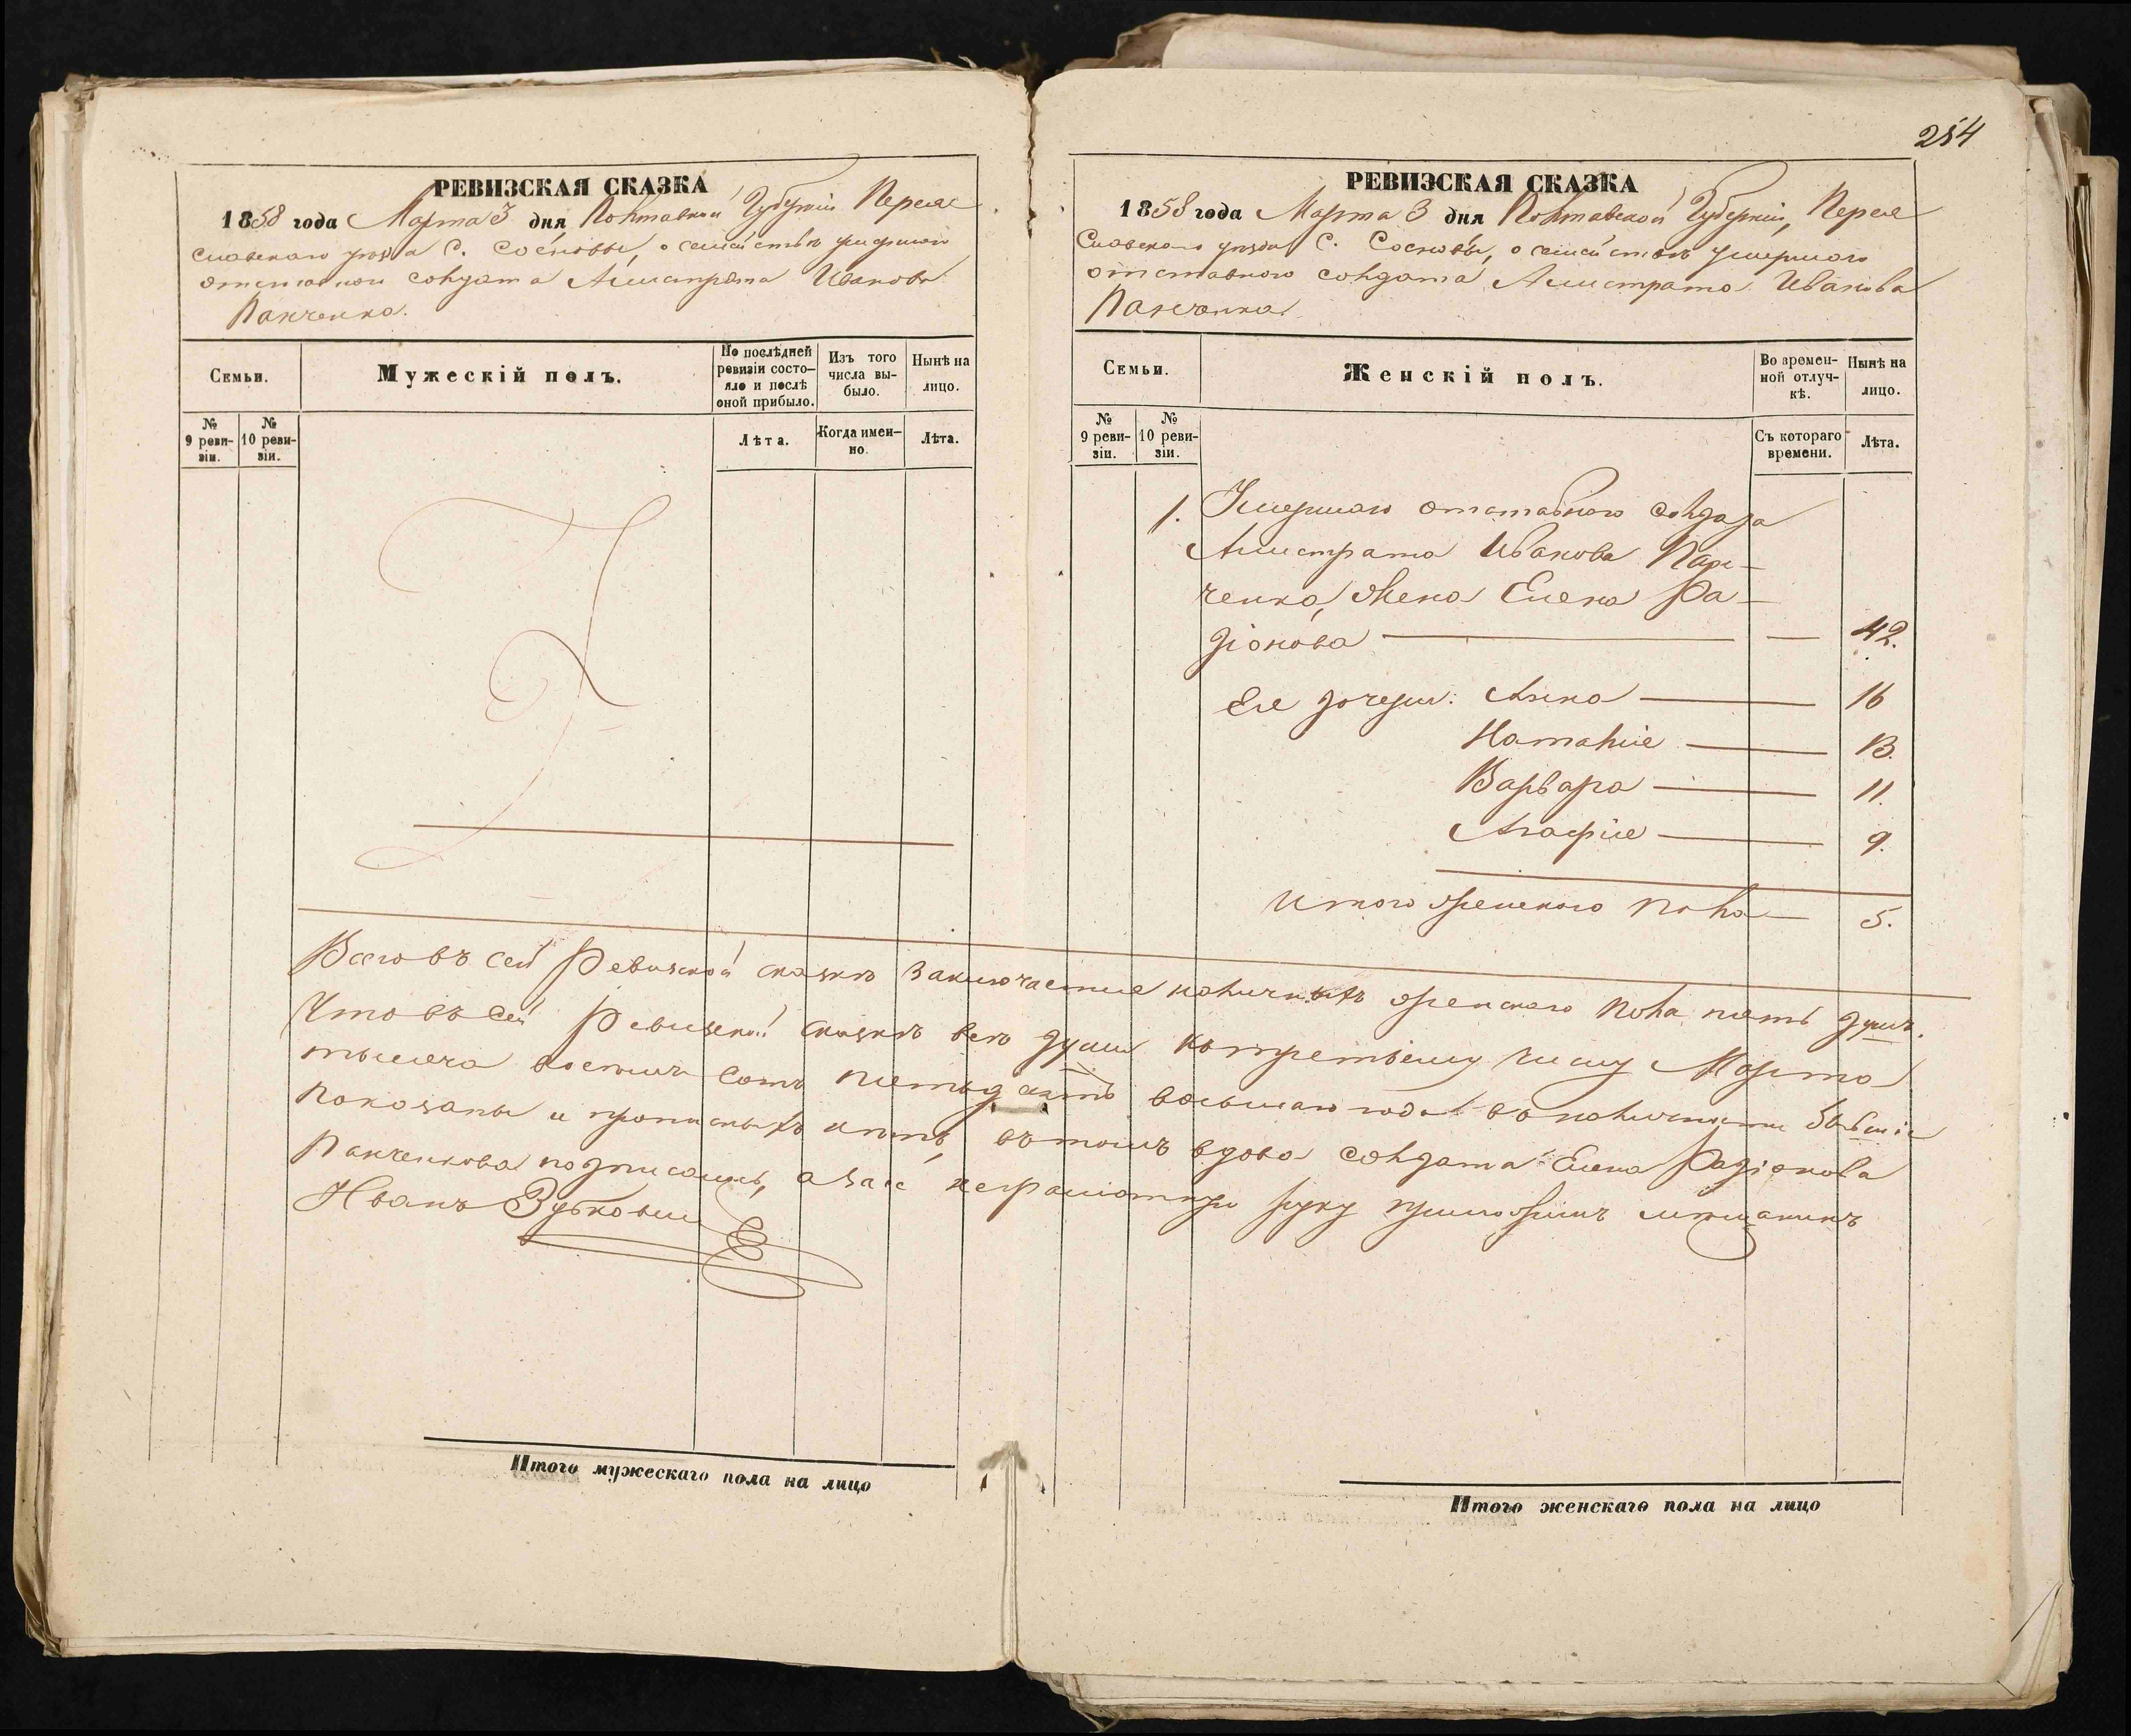 РЕВИЗСКАЯ СКАЗКА
1858 года Марта 3 дня Полтавской Губерніи Перея
славскаго уезда С. Сосновы, о семействѣ умершаго
отставнаго солдата Амистрата Иванова
Панченка.
Семьи.
Мужескій полъ.
По послѣдней ревизіи состо—
яло и послѣ
оной прибыло.
Изъ того
числа вы-
было.
Нынѣ на
лицо.
№
9 реви-
зіи.
№
10 реви-
зіи.
Лѣта.
Когда имен—
но.
Лѣта.
Итого мужескаго пола на лицо
254
РЕВИЗСКАЯ СКАЗКА
1858 года Марта 3 дня Полтавской Губерніи, Перея
Славскаго уезда С. Сосновы, о семействѣ умершаго
отставного солдата Амистрата Иванова
Панченка.
Семьи.
Женскій полъ.
Во времен-
ной отлуч-
кѣ.
Нынѣ на
лицо.
№
9 реви-
зіи.
№
10 реви-
зіи.
Съ котораго
времени.
Лѣта.
1. Умершаго отставного солдата
Амистрата Иванова Пан—
ченка, жена Елена Ра—
діонова — 42.
Ея дочери: Анна — 16
Наталия — 13.
Варвара — 11.
Агафия — 9.
Итого женского пола — 5.
Всего въ сей Ревизской сказкѣ заключается наличныхъ женского пола пять душъ.
Что въ сей Ревизской сказкѣ всѣ души къ третьему числу Марта
тысяча восемь сотъ пятьдесятъ восьмаго года въ наличности бывшие
показаны и прописныхъ нетъ, въ томъ вдова солдата Елена Радіонова
Панченкова подписалась, а за её неграмотную руку приложилъ мѣщанинъ
Иванъ
Итого женскаго пола на лицо